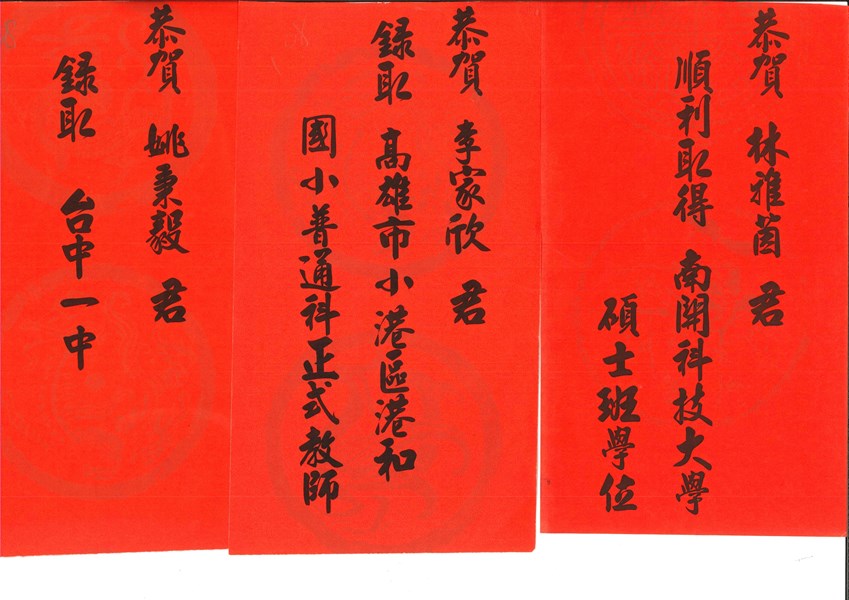 恭賀 林雅茵 君
順利取得 南開科技大學
碩士班學位
恭賀 李家欣 君
録取 高雄市小港區港和
國小普通科正式教師
恭賀 姚秉毅 君
録取 台中一中